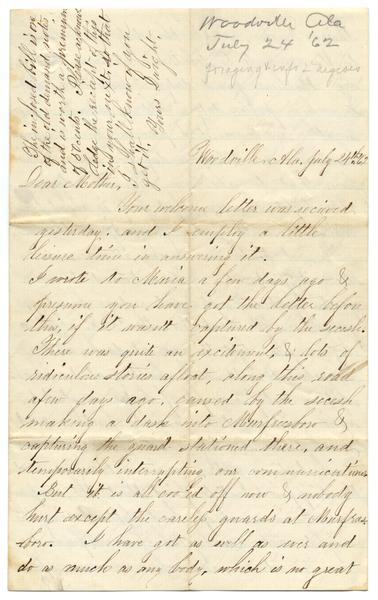 Woodville Ala
July 24 '62
foraging & wifs 2 negroes
The inclosed bill is one
of the old demand notes
and is worth a premium
of 8 cents. Please acknowl
edge the receipt of this
in your next, so that
I shall know you
get it. Yours Dwight.
Woodville, Ala. July 24th, 62
Dear Mother,
Your welcome letter was recieved
yesterday, and I employ a little
liesure time in answering it.
I wrote to Maria a few days ago &
presume you have got the letter before
this, if it wasnt captured by the secesh.
There was quite an excitement, & lots of
ridiculous stories afloat, along this road
a few days ago, caused by the secesh
making a dash into Murfreesboro &
capturing the guard stationed there, and
temporarily interrupting our communications
But it is all cooled off now & nobody
hurt except the careless guards at Murfrees
boro. I have got as well as ever and
do as much as any body, which is no great